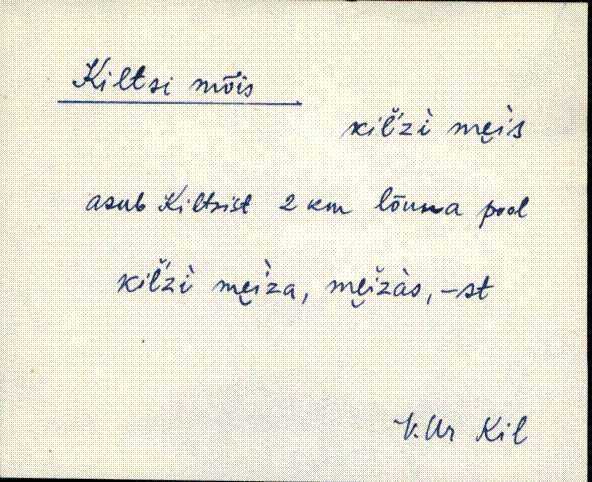 Kiltsi mõis
kil̆'zì mẹìs
asub Kiltsist 2 km lõuna pool
kil̆'zì mẹìza, mẹizàs, -st
V. Ur Kil